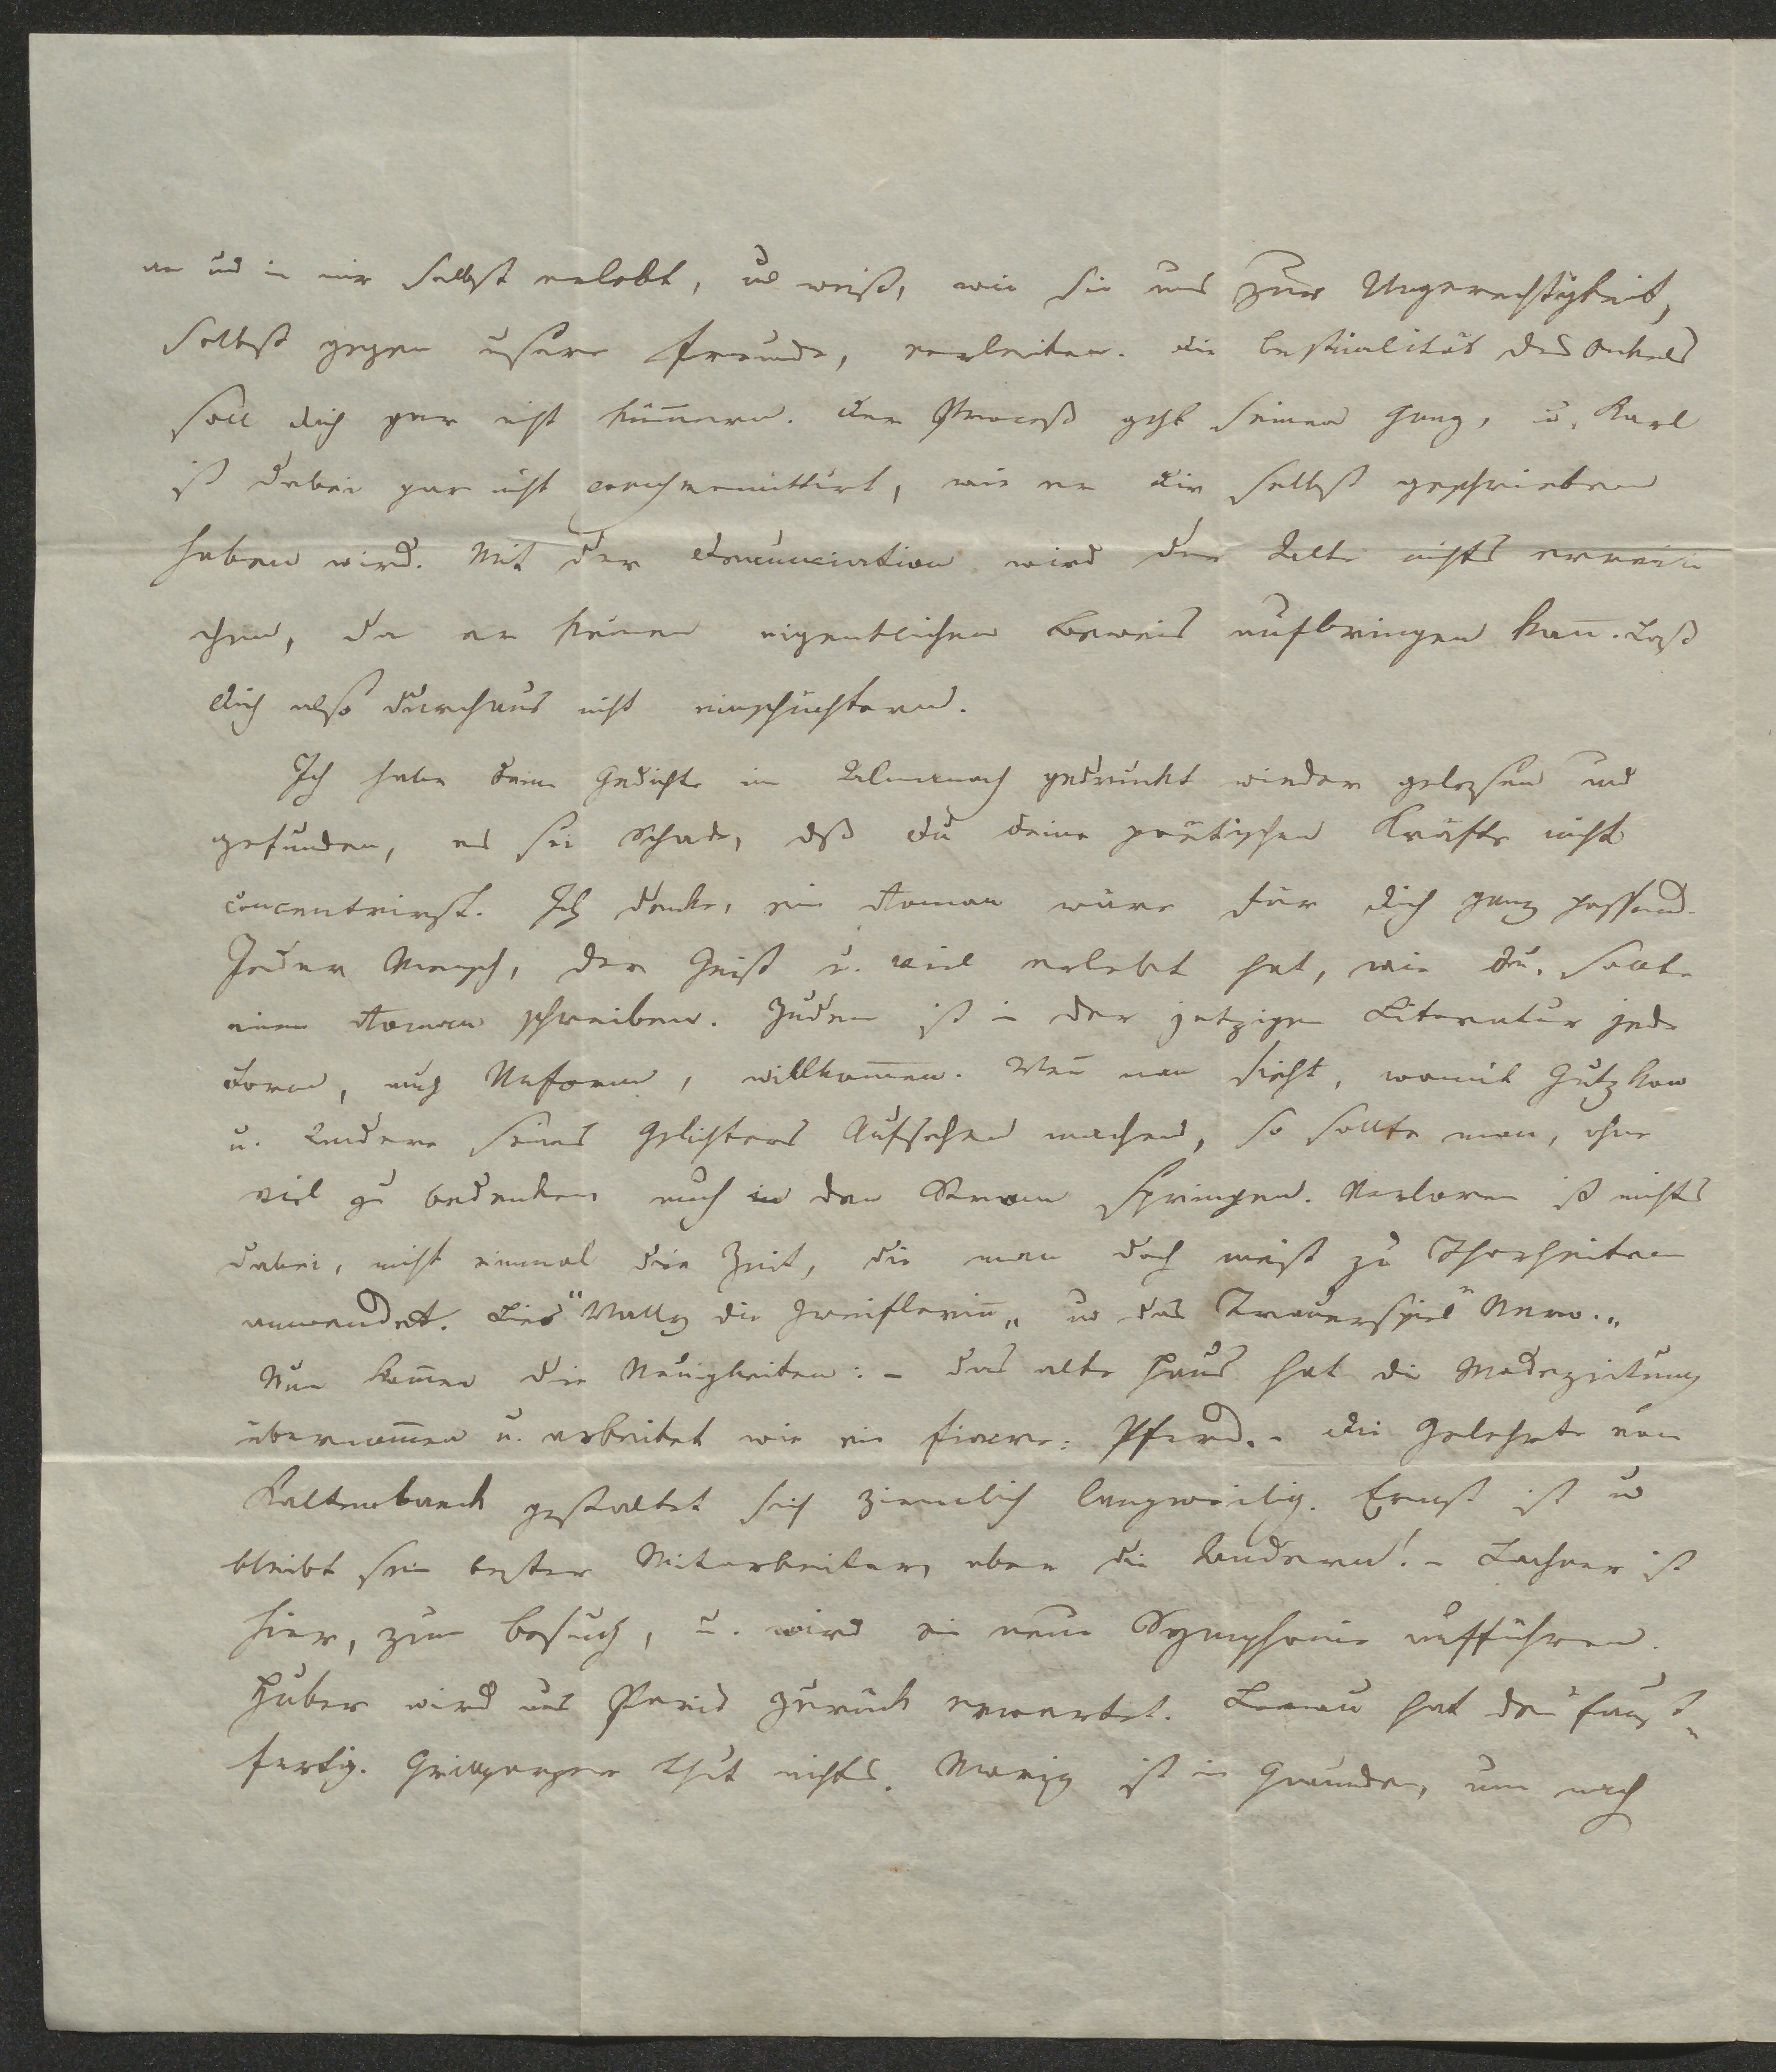 an und in mir selbst erlebt, und weiß, wie sie uns zur Ungerechtigkeit,
selbst gegen unsere Freunde, verleiten. Die Bestialität des Onkels
soll dich gar nicht kümern. Der Proceß geht seinen Gang, u. Karl
ist dabei gar nicht compromittirt, wie er dir selbst geschrieben
haben wird. Mit der Denunciation wird der Alte nichts errei-
chen, da er keinen eigentlichen Beweis aufbringen kan̄. Laß
dich also durchaus nicht einschüchtern.
Ich habe deine Gedichte im Almanach gedruckt wieder gelesen und
gefunden, es sei Schade, dß du deine poëtischen Kräfte nicht
concentrirst. Ich denke, ein Roman wäre für dich ganz passend.
Jeder Mensch, der Geist u. viel erlebt hat, wie du, sollte
einen Roman schreiben. Zudem ist in der jetzigen Literatur jede
Form, auch Unform, willkom̄en. Wen̄ man sieht, womit Gutzkow
u. Andere seines Gelichters Aufsehen machen, so sollte man, ohne
viel zu bedenken auch in den Strom springen. Verloren ist nichts
dabei, nicht einmal die Zeit, die man doch meist zu Thorheiten
anwendet. Lies "Wally die Zweiflerin̄„ und das Trauerspiel "Nero.„
Nun kom̄en die Neuigkeiten: – das alte Haus hat die Modezeitung
übernom̄en u. arbeitet wie ein Fiacre-Pferd. – Die Gelehrte von
Kaltenbaeck gestaltet sich ziemlich langweilig. Ernst ist u
bleibt sein bester Mitarbeiter, aber die Andern! – Lachner ist
hier, zum Besuch, u. wird eine neue Symphonie aufführen.
Huber wird aus Paris zurück erwartet. Lenau hat den Faust
fertig. Grillparzer thut nichts. Moriz ist in Gmunden, um nach